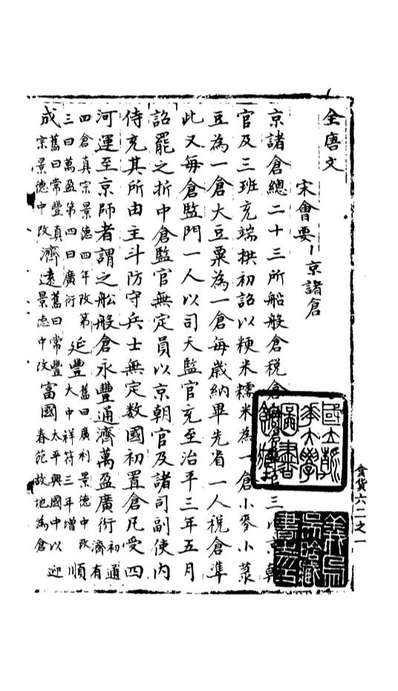 全唐文
宋會要 京諸倉
京諸倉總二十三所船般倉税倉
官及三班充端拱初詔以粳米糯米為一倉小麥小菉
豆為一倉大豆粟為一倉每歲納畢先省一人税倉準
此又每倉監門一人以司天監官充至治平三年五月
詔罷之折中倉監官無定員以京朝官及諸司副使内
侍充其所由主斗防守兵士無定數國初置倉凡受四
河運至京師者謂之船般倉永豐通濟萬盈廣衍初通濟有
四倉真宗景德四年改第三曰萬盈第四曰廣衍延豐舊曰廣利景德中改大中祥符三年增順
成舊曰常豐真宗景德中改濟遠舊曰常豐景德中改富國太平興國中以春苑故地為倉迎
食貨六二之一